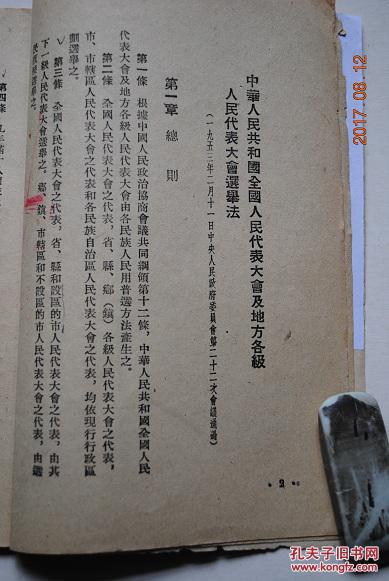 中華人民共和國全國人民代表大會及地方各級
人民代表大會選舉法
（一九五三年二月十一日中央人民政府委員會第二十二次會議通過）
第一章 總則
第一條 根據中國人民政治協商會議共同綱領第十二條，中華人民共和國全國人民
代表大會及地方各級人民代表大會由各民族人民用普選方法產生之。
第二條 全國人民代表大會之代表，省、縣、鄉（鎮）各級人民代表大會之代表，
市、市轄區人民代表大會之代表和各民族自治區人民代表大會之代表，均依現行行政區
劃選舉之。
第三條 全國人民代表大會之代表，省、縣和設區的市人民代表大會之代表，由其
下一級人民代表大會選舉之。鄉、鎮、市轄區和不設區的市人民代表大會之代表，由選
民直接選舉之。
第四條
·2·
2017.08.12
孔夫子旧书网